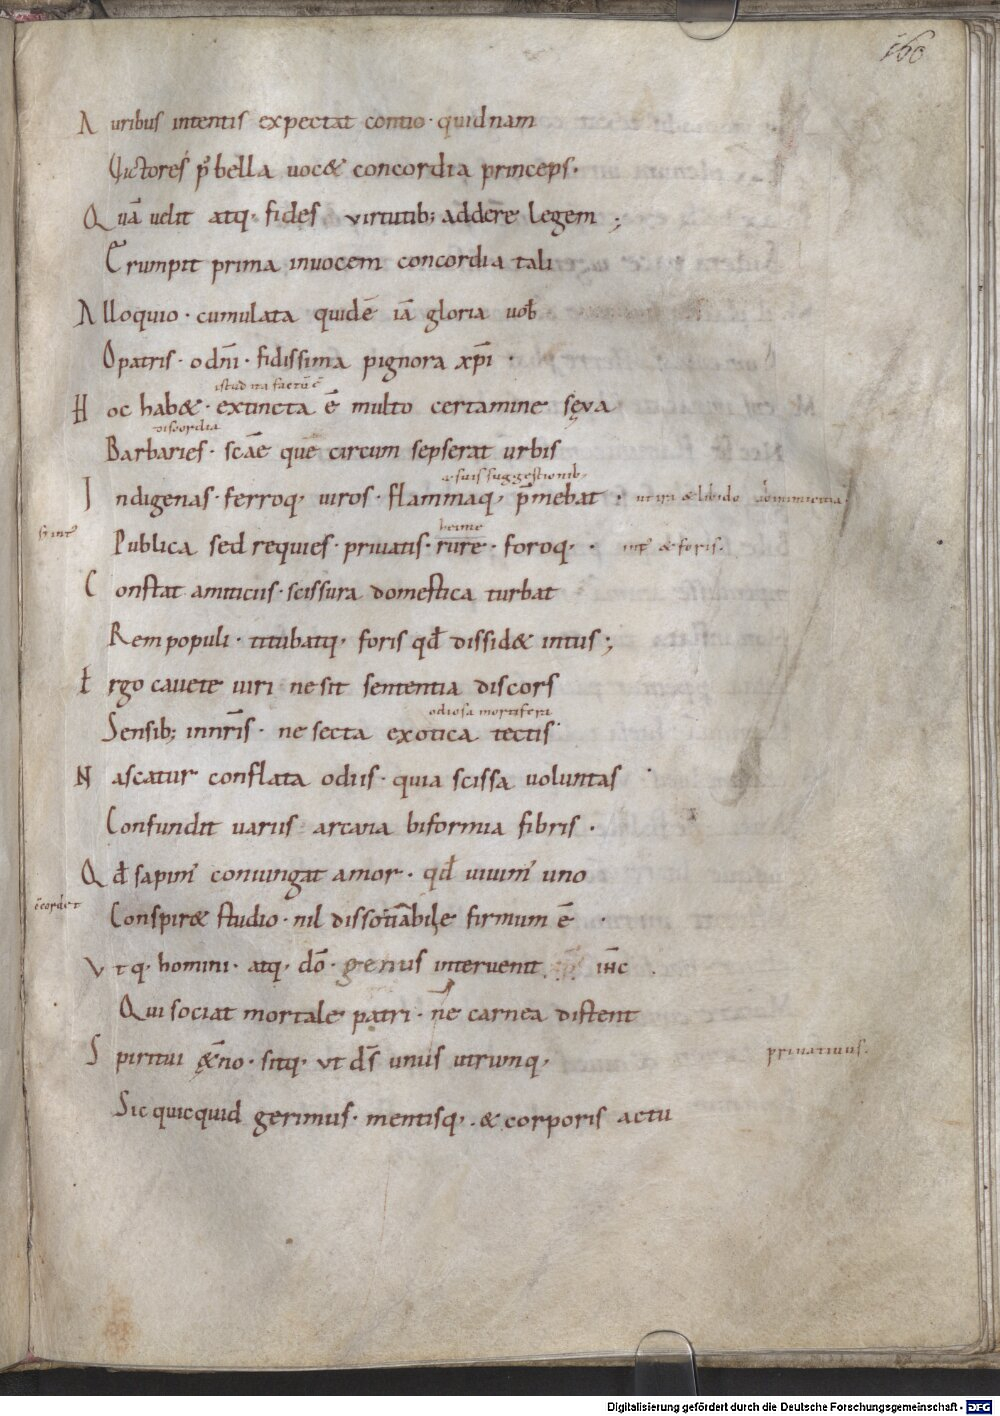 160
Auribus intentis expectat contio · quidnam
Victores p᷒ bella uoc& concordia princeps·
Quā uelit atq· fides virtutib; addere legem ;
Erumpit prima inuocem concordia tali
Alloquio · cumulata quidē iā gloria uob̄
O patris · o dn̄i · fidissima pignora xp̄i ·
istud ita factū ē
Hoc hab& · extincta ē multo certamine sęva
discordia
Barbaries · sc̄ae que circum sepserat urbis
a suis suggestionib;
Indigenas · ferroq· uiros · flammaq· p̄mebat · ut ira & libido
Publica sed requies · priuatis · rure · foroq· · int᷒ & foris.
Constat amiticiis · scissura domestica turbat
Rem populi · titubatq· foris qd̄ dissid& intus;
Ergo cauete uiri ne sit sententia discors
odiosa mortifera
Sensib; inn̄ris · ne secta exotica tectis
Nascatur conflata odiis · quia scissa uoluntas
Confundit uariis arcana biformia fibris ·
Qd̄ sapim᷒ coniungat amor · qd̄ uiuim᷒ uno
Conspir& studio · nil dissotiabile firmum ē ·
Vtq· homini · atq· dō · genus interuenit ihc
Qui sociat mortale patri · ne carnea distent
Spiritui &̄no · sitq· ut ds̄ unus utrunq·
Sic quicquid gerimus · mentisq· & corporis actu
Digitalisierung gefördert durch die Deutsche Forschungsgemeinschaft - DFG